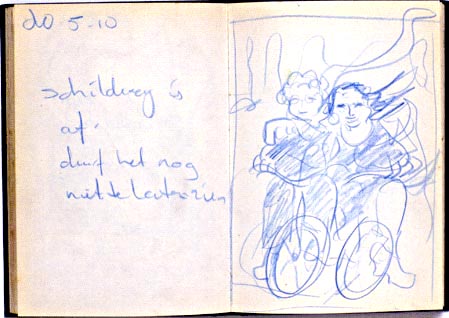 do 5-10
schilderij is
af.
durf het nog
niet te laten zien